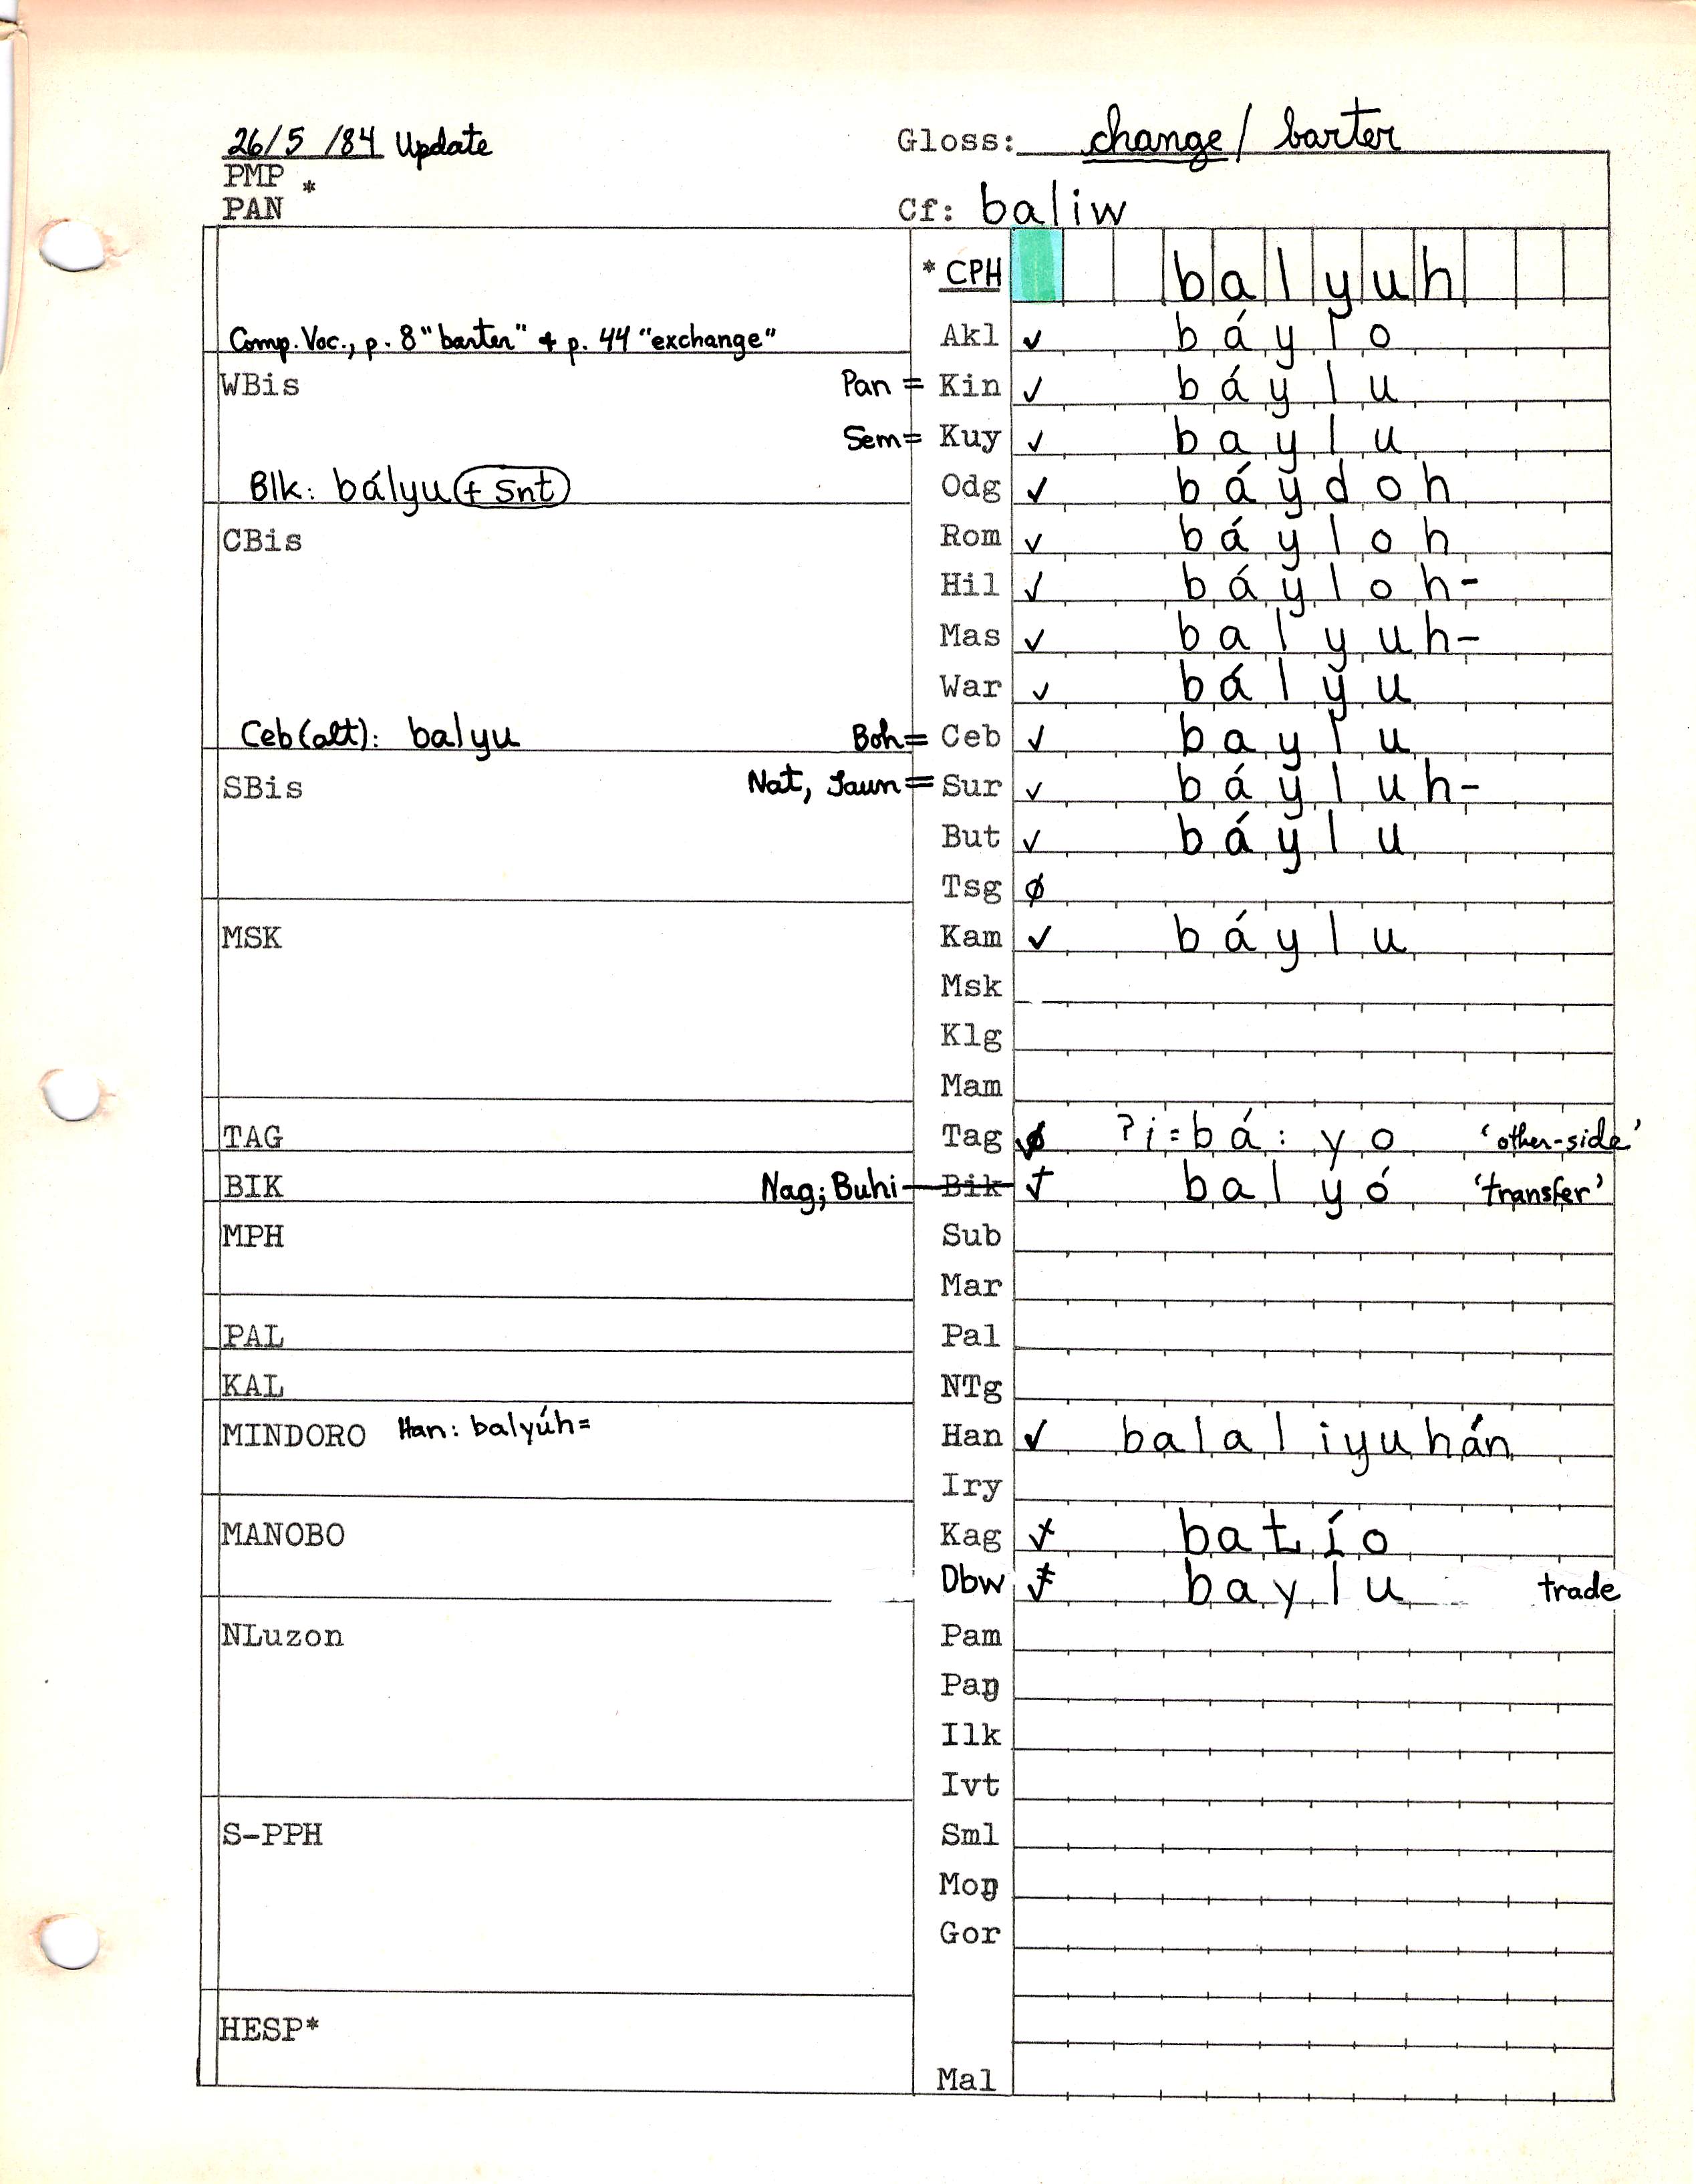 26/5/84 Update Gloss: change / barter
PMP *
PAN Cf: baliw
* CPH balyuh
Comp. Voc., p. 8 "barter" + p. 44 "exchange" Akl ✓ báylo
WBis Pan = Kin ✓ báylu
Sem = Kuy ✓ baylu
Blk: bályu (+ Snt) Odg ✓ báydoh
CBis Rom ✓ báyloh
Hil ✓ báyloh-
Mas ✓ balyuh-
War ✓ bályu
Ceb (alt): balyu Boh = Ceb ✓ baylu
SBis Nat, Jaun = Sur ✓ báyluh-
But ✓ báylu
Tsg ∅
MSK Kam ✓ báylu
Msk
Klg
Mam
TAG Tag ∅ ?i=bá:yo 'other-side'
BIK Nag; Buhi Bik ✓ balyó 'transfer'
MPH Sub
Mar
PAL Pal
KAL NTg
MINDORO Han: balyúh= Han ✓ balaliyuhán
Iry
MANOBO Kag ✓ batío
Dbw ✓ baylu trade
NLuzon Pam
Paŋ
Ilk
Ivt
S-PPH Sml
Moŋ
Gor
HESP*
Mal